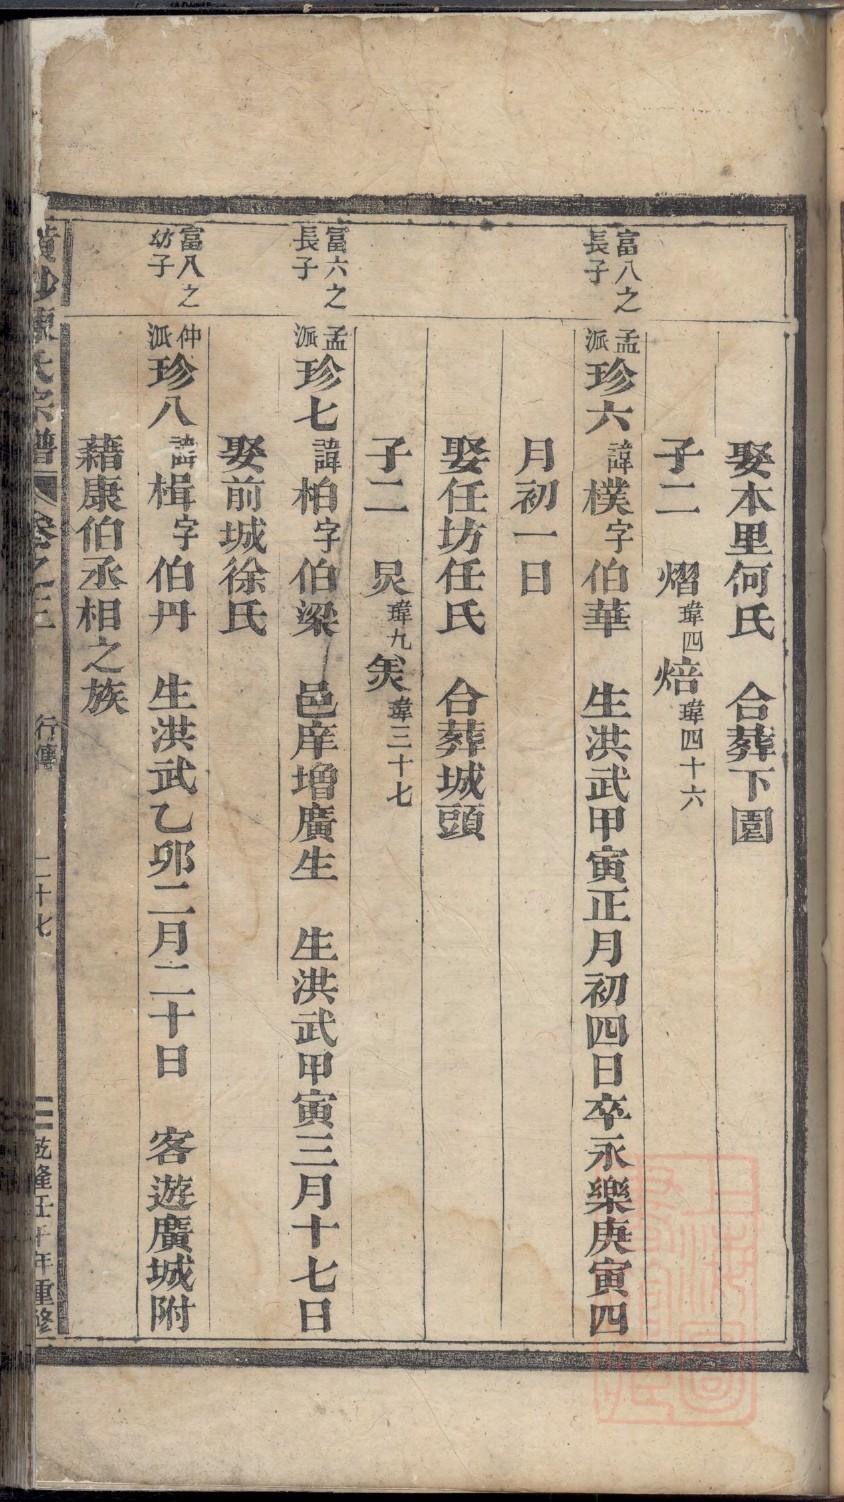 娶本里何氏　合葬下園
子二　熠瑋四焙瑋四十六
富八之長子
孟派珍六諱樸字伯華　生洪武甲寅正月初四日卒永樂庚寅四
月初一日
娶任坊任氏　合葬城頭
子二　炅瑋九炗瑋三十七
富六之長子
孟派珍七諱柏字伯梁　邑庠增廣生　生洪武甲寅三月十七日
娶前城徐氏
富八之幼子
仲派珍八諱楫字伯丹　生洪武乙卯二月二十日　客遊廣城附
藉康伯丞相之族
陳氏宗譜　卷之三　行傳　二十七　乾隆壬午年重修
上海圖書館藏